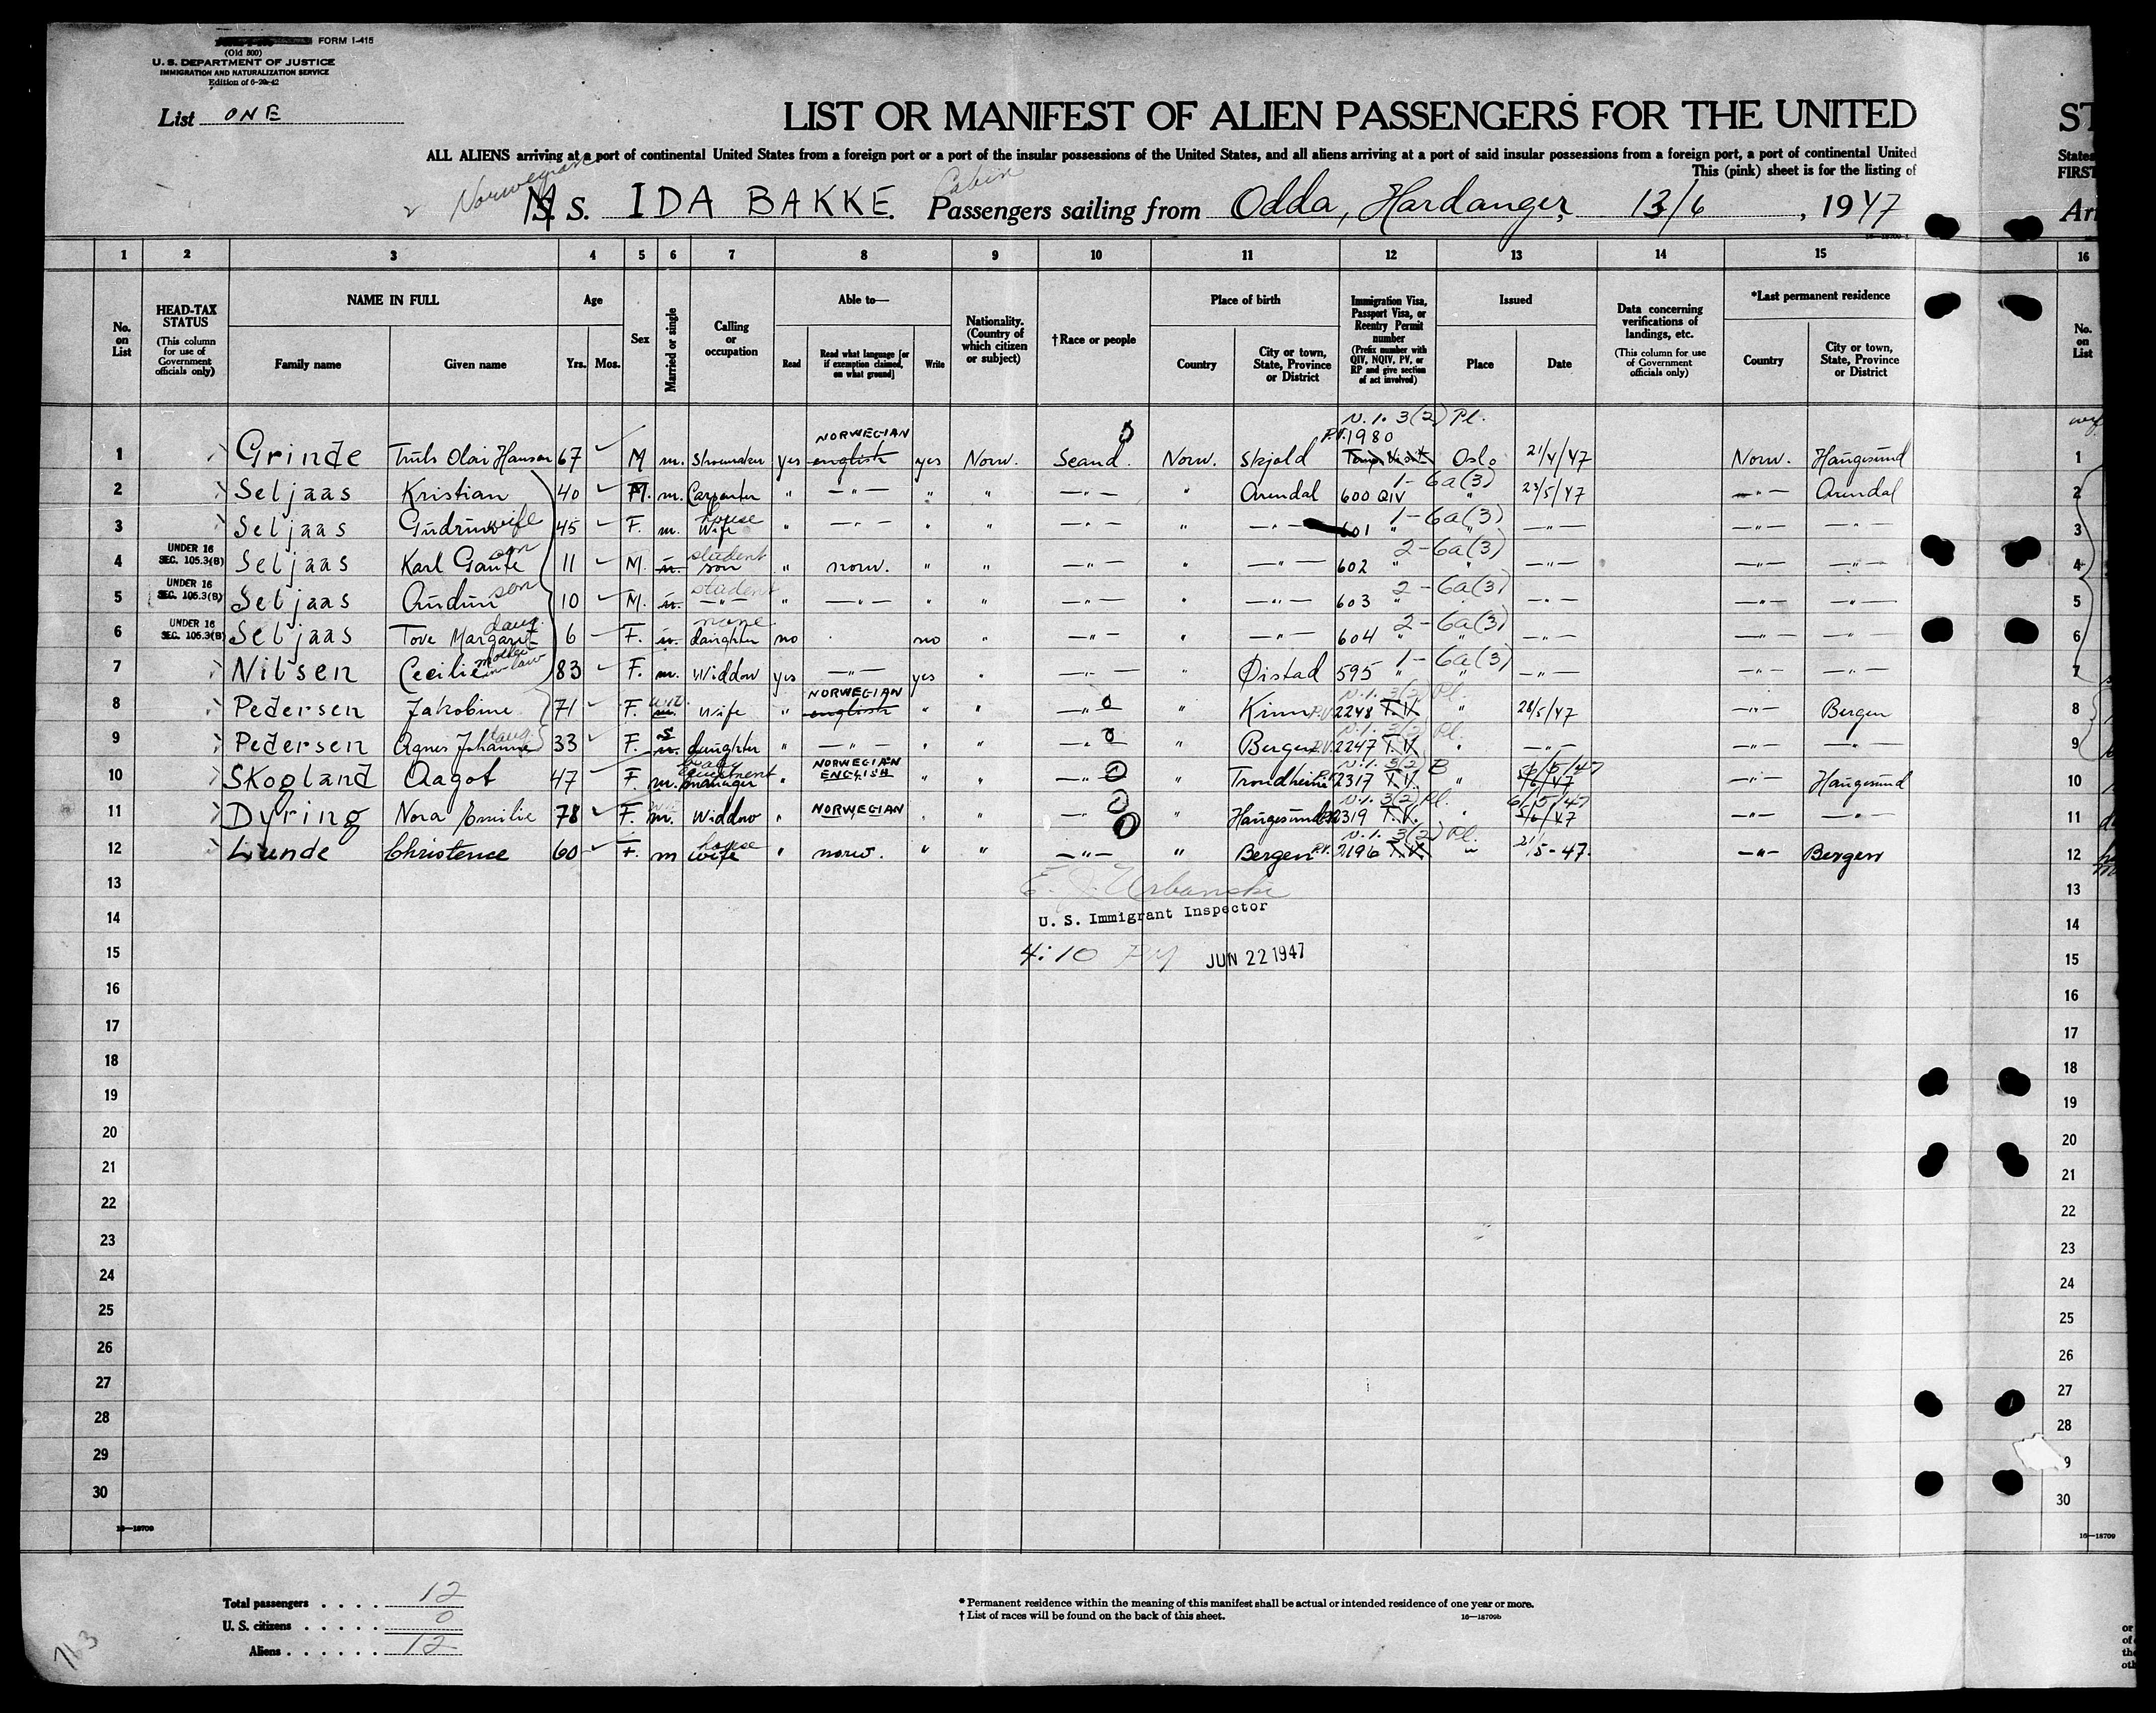 FORM 1-415
(Old 500)
U. S. DEPARTMENT OF JUSTICE
IMMIGRATION AND NATURALIZATION SERVICE
Edition of 6-29-42
List ONE
LIST OR MANIFEST OF ALIEN PASSENGERS FOR THE UNITED
ST
ALL ALIENS arriving at a port of continental United States from a foreign port or a port of the insular possessions of the United States, and all aliens arriving at a port of said insular possessions from a foreign port, a port of continental United
States
This (pink) sheet is for the listing of
FIRST
Norwegian Cabin
M. S. IDA BAKKE. Passengers sailing from Odda, Hardanger, 13/6, 1947
Arr
1 2 3 4 5 6 7 8 9 10 11 12 13 14 15 16
No. on List
HEAD-TAX STATUS (This column for use of Government officials only)
NAME IN FULL Family name Given name
Age Yrs. Mos.
Sex
Married or single
Calling or occupation
Able to— Read Read what language [or if exemption claimed, on what ground] Write
Nationality. (Country of which citizen or subject)
†Race or people
Place of birth Country City or town, State, Province or District
Immigration Visa, Passport Visa, or Reentry Permit number (Prefix number with QIV, NQIV, PV, or RP and give section of act involved)
Issued Place Date
Data concerning verifications of landings, etc. (This column for use of Government officials only)
*Last permanent residence Country City or town, State, Province or District
No. on List
N.1. 3(2) Pl.
NORWEGIAN P.V. 1980
1 Grinde Truls Olai Hansen 67 M m. Shoemaker yes english yes Norw. Scand. Norw. Skjold Oslo 21/4/47 Norw. Haugesund 1
1-6a(3)
2 Seljaas Kristian 40 M. m. Carpenter " —"— " " —"— " Arendal 600 QIV " 23/5/47 —"— Arendal 2
wife house 1-6a(3)
3 Seljaas Gudrun 45 F. m. Wife " —"— " " —"— " —"— 601 " " —"— —"— —"— 3
UNDER 16 son student 2-6a(3)
SEC. 105.3(B)
4 Seljaas Karl Gaute 11 M. son " norw. " " —"— " —"— 602 " " —"— —"— —"— 4
UNDER 16 son student 2-6a(3)
SEC. 105.3(B)
5 Seljaas Audun 10 M. —"— " —"— " " —"— " —"— 603 " " —"— —"— —"— 5
UNDER 16 daug. none 2-6a(3)
SEC. 105.3(B)
6 Seljaas Tove Margaret 6 F. daughter no no " —"— " —"— 604 " " —"— —"— —"— 6
mother in law 1-6a(3)
7 Nilsen Cecilie 83 F. m. Widdow yes —"— yes " —"— " Øistad 595 " " —"— —"— —"— 7
NORWEGIAN N.1. 3(2) Pl.
8 Pedersen Jakobine 71 F. Wife " english " " —"— " Kinn P.V. 2248 T.V. " 28/5/47 —"— Bergen 8
daug. S N.1. 3(2) Pl.
9 Pedersen Agnes Johanne 33 F. daughter " —"— " " —"— " Bergen P.V. 2247 T.V. " —"— —"— —"— 9
NORWEGIAN N.1. 3(2) B 6/5/47
10 Skogland Aagot 47 F. m. manager " ENGLISH " " —"— " Trondheim 2317 T.V. " —"— Haugesund 10
N.1. 3(2) Pl. 6/5/47
11 Dyring Nora Emilie 78 F. Widdow " NORWEGIAN " " —"— " Haugesund 2319 T.V. " 5/6/47 —"— —"— 11
house N.1. 3(2) Pl.
12 Lunde Christence 60 F. m wife " norw. " " —"— " Bergen P.V. 2196 T.V. " 21/5-47. —"— Bergen 12
13 13
E. J. Urbanski
U. S. Immigrant Inspector
14 14
4:10 PM JUN 22 1947
15 15
16 16
17 17
18 18
19 19
20 20
21 21
22 22
23 23
24 24
25 25
26 26
27 27
28 28
29 9
30 30
16—18709 16—18709
Total passengers . . . . 12
U. S. citizens . . . . . 0
Aliens . . . . . . 12
* Permanent residence within the meaning of this manifest shall be actual or intended residence of one year or more.
† List of races will be found on the back of this sheet. 16—18709b